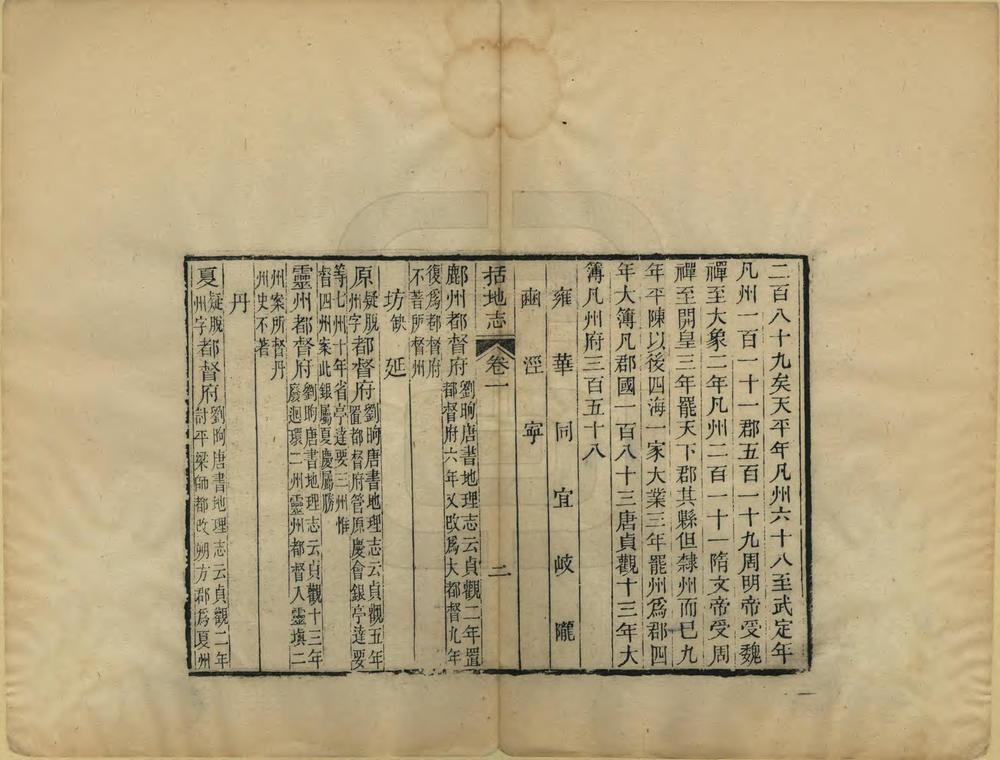 二百八十九矣天平年凡州六十八至武定年
凡州一百一十一郡五百一十九周明帝受魏
禪至大象二年凡州二百一十一隋文帝受周
禪至開皇三年罷天下郡其縣但隸州而已九
年平陳以後四海一家大業三年罷州爲郡四
年大簿凡郡國一百八十三唐貞觀十三年大
簿凡州府三百五十八
雍 華 同 宜 岐 隴
豳 涇 寧
括地志 卷一 二
鄜州都督府劉昫唐書地理志云貞觀二年置
都督府六年又改爲大都督九年
復爲都督府
不著所督州
坊缺 延
原疑脫州字都督府劉昫唐書地理志云貞觀五年
置都督府管原慶會銀亭達要
等七州十年省亭達要三州惟
督四州案此銀屬夏慶屬勝
靈州都督府劉昫唐書地理志云貞觀十三年
廢迴環二州靈州都督入靈塡二
州案所督丹
州史不著
丹
夏疑脫州字都督府劉昫唐書地理志云貞觀二年
討平梁師都改朔方郡爲夏州